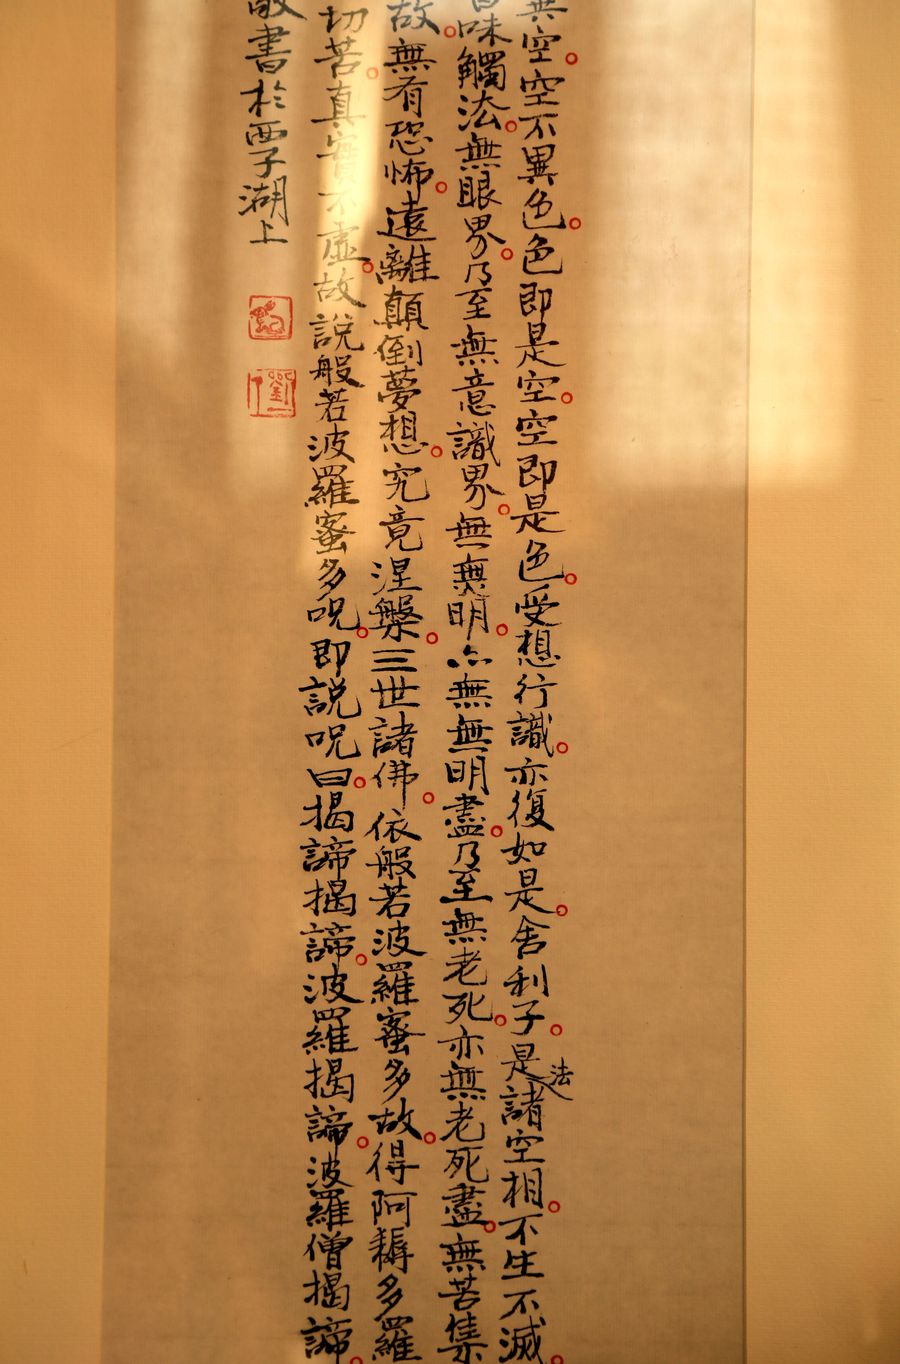 異空。空不異色。色即是空。空即是色。受想行識。亦復如是。舍利子。是諸法空相。不生不滅。
味觸法。無眼界。乃至無意識界。無無明。亦無無明盡。乃至無老死。亦無老死盡。無苦集
故。無有恐怖。遠離顛倒夢想。究竟涅槃。三世諸佛。依般若波羅蜜多故。得阿耨多羅
切苦。真實不虛。故說般若波羅蜜多呪。即說呪曰。揭諦揭諦。波羅揭諦。波羅僧揭諦。
敬書於西子湖上